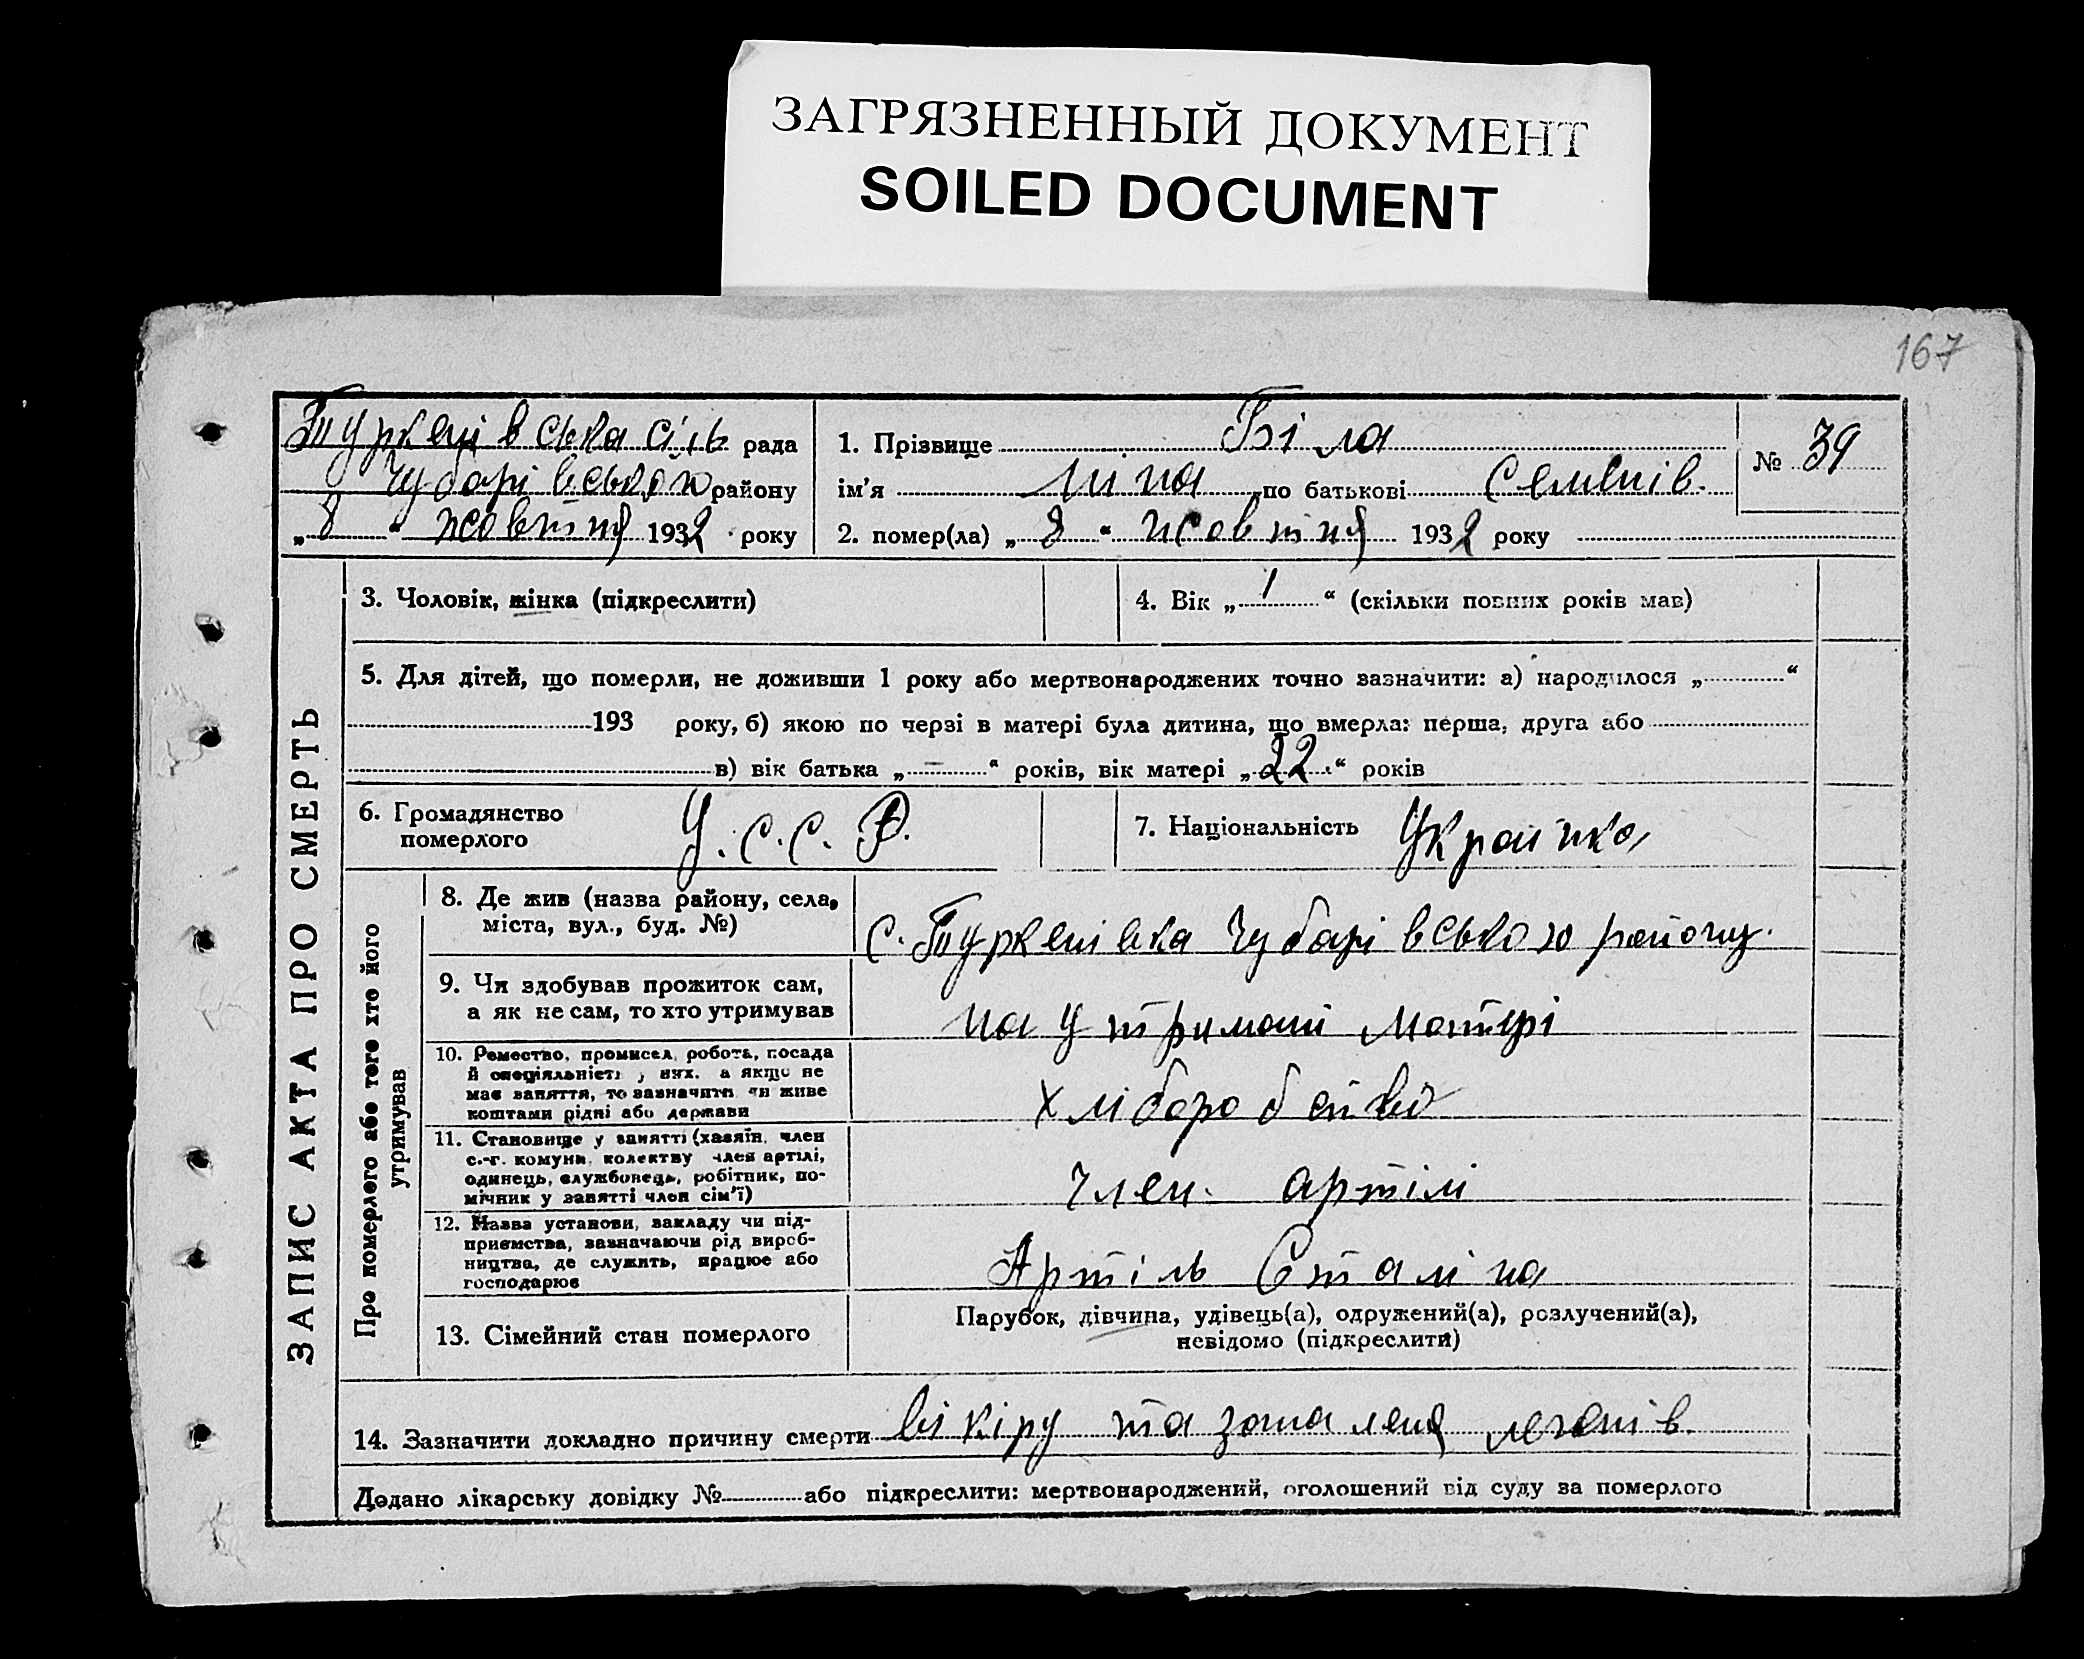 ЗАГРЯЗНЕННЫЙ ДОКУМЕНТ
SOILED DOCUMENT
167
Туркенівська сіль рада
Чубарівського району
„8“ жовтня 1932 року
1. Прізвище Біла
ім’я Ліна по батькові Семенів.
2. помер(ла) „8“ жовтня 1932 року
№ 39
ЗАПИС АКТА ПРО СМЕРТЬ
3. Чоловік, жінка (підкреслити)
4. Вік „1“ (скільки повних років мав)
5. Для дітей, що померли, не доживши 1 року або мертвонароджених точно зазначити: а) народилося „ “
193 року, б) якою по черзі в матері була дитина, що вмерла: перша, друга або
в) вік батька „—“ років, вік матері „22“ років
6. Громадянство
померлого
У.С.С.Р.
7. Національність Українка
Про померлого або того хто його
утримував
8. Де жив (назва району, села,
міста, вул., буд. №)
с. Туркенівка Чубарівського району.
9. Чи здобував прожиток сам,
а як не сам, то хто утримував
на утримані матері
10. Ремество, промисел, робота, посада
й спеціяльність у них. а якщо не
має заняття, то зазначити чи живе
коштами рідні або держави
хліборобство
11. Становище у занятті (хазяїн, член
с.-г. комуни, колективу член артілі,
одинець, службовець, робітник, по-
мічник у занятті член сім’ї)
член. артілі
12. Назва установи, закладу чи під-
приємства, зазначаючи рід вироб-
ництва, де служить, працює або
господарює
Артіль Сталіна
13. Сімейний стан померлого
Парубок, дівчина, удівець(а), одружений(а), розлучений(а),
невідомо (підкреслити)
14. Зазначити докладно причину смерти від кіру та запалення легенів.
Додано лікарську довідку № або підкреслити: мертвонароджений, оголошений від суду за померлого